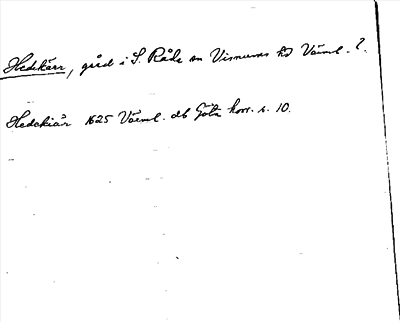 Hedekärr, gård i S. Råda sn Visnums hd Värml. l.
Hedekiär 1625 Värml. db Göta hovr. s. 10.